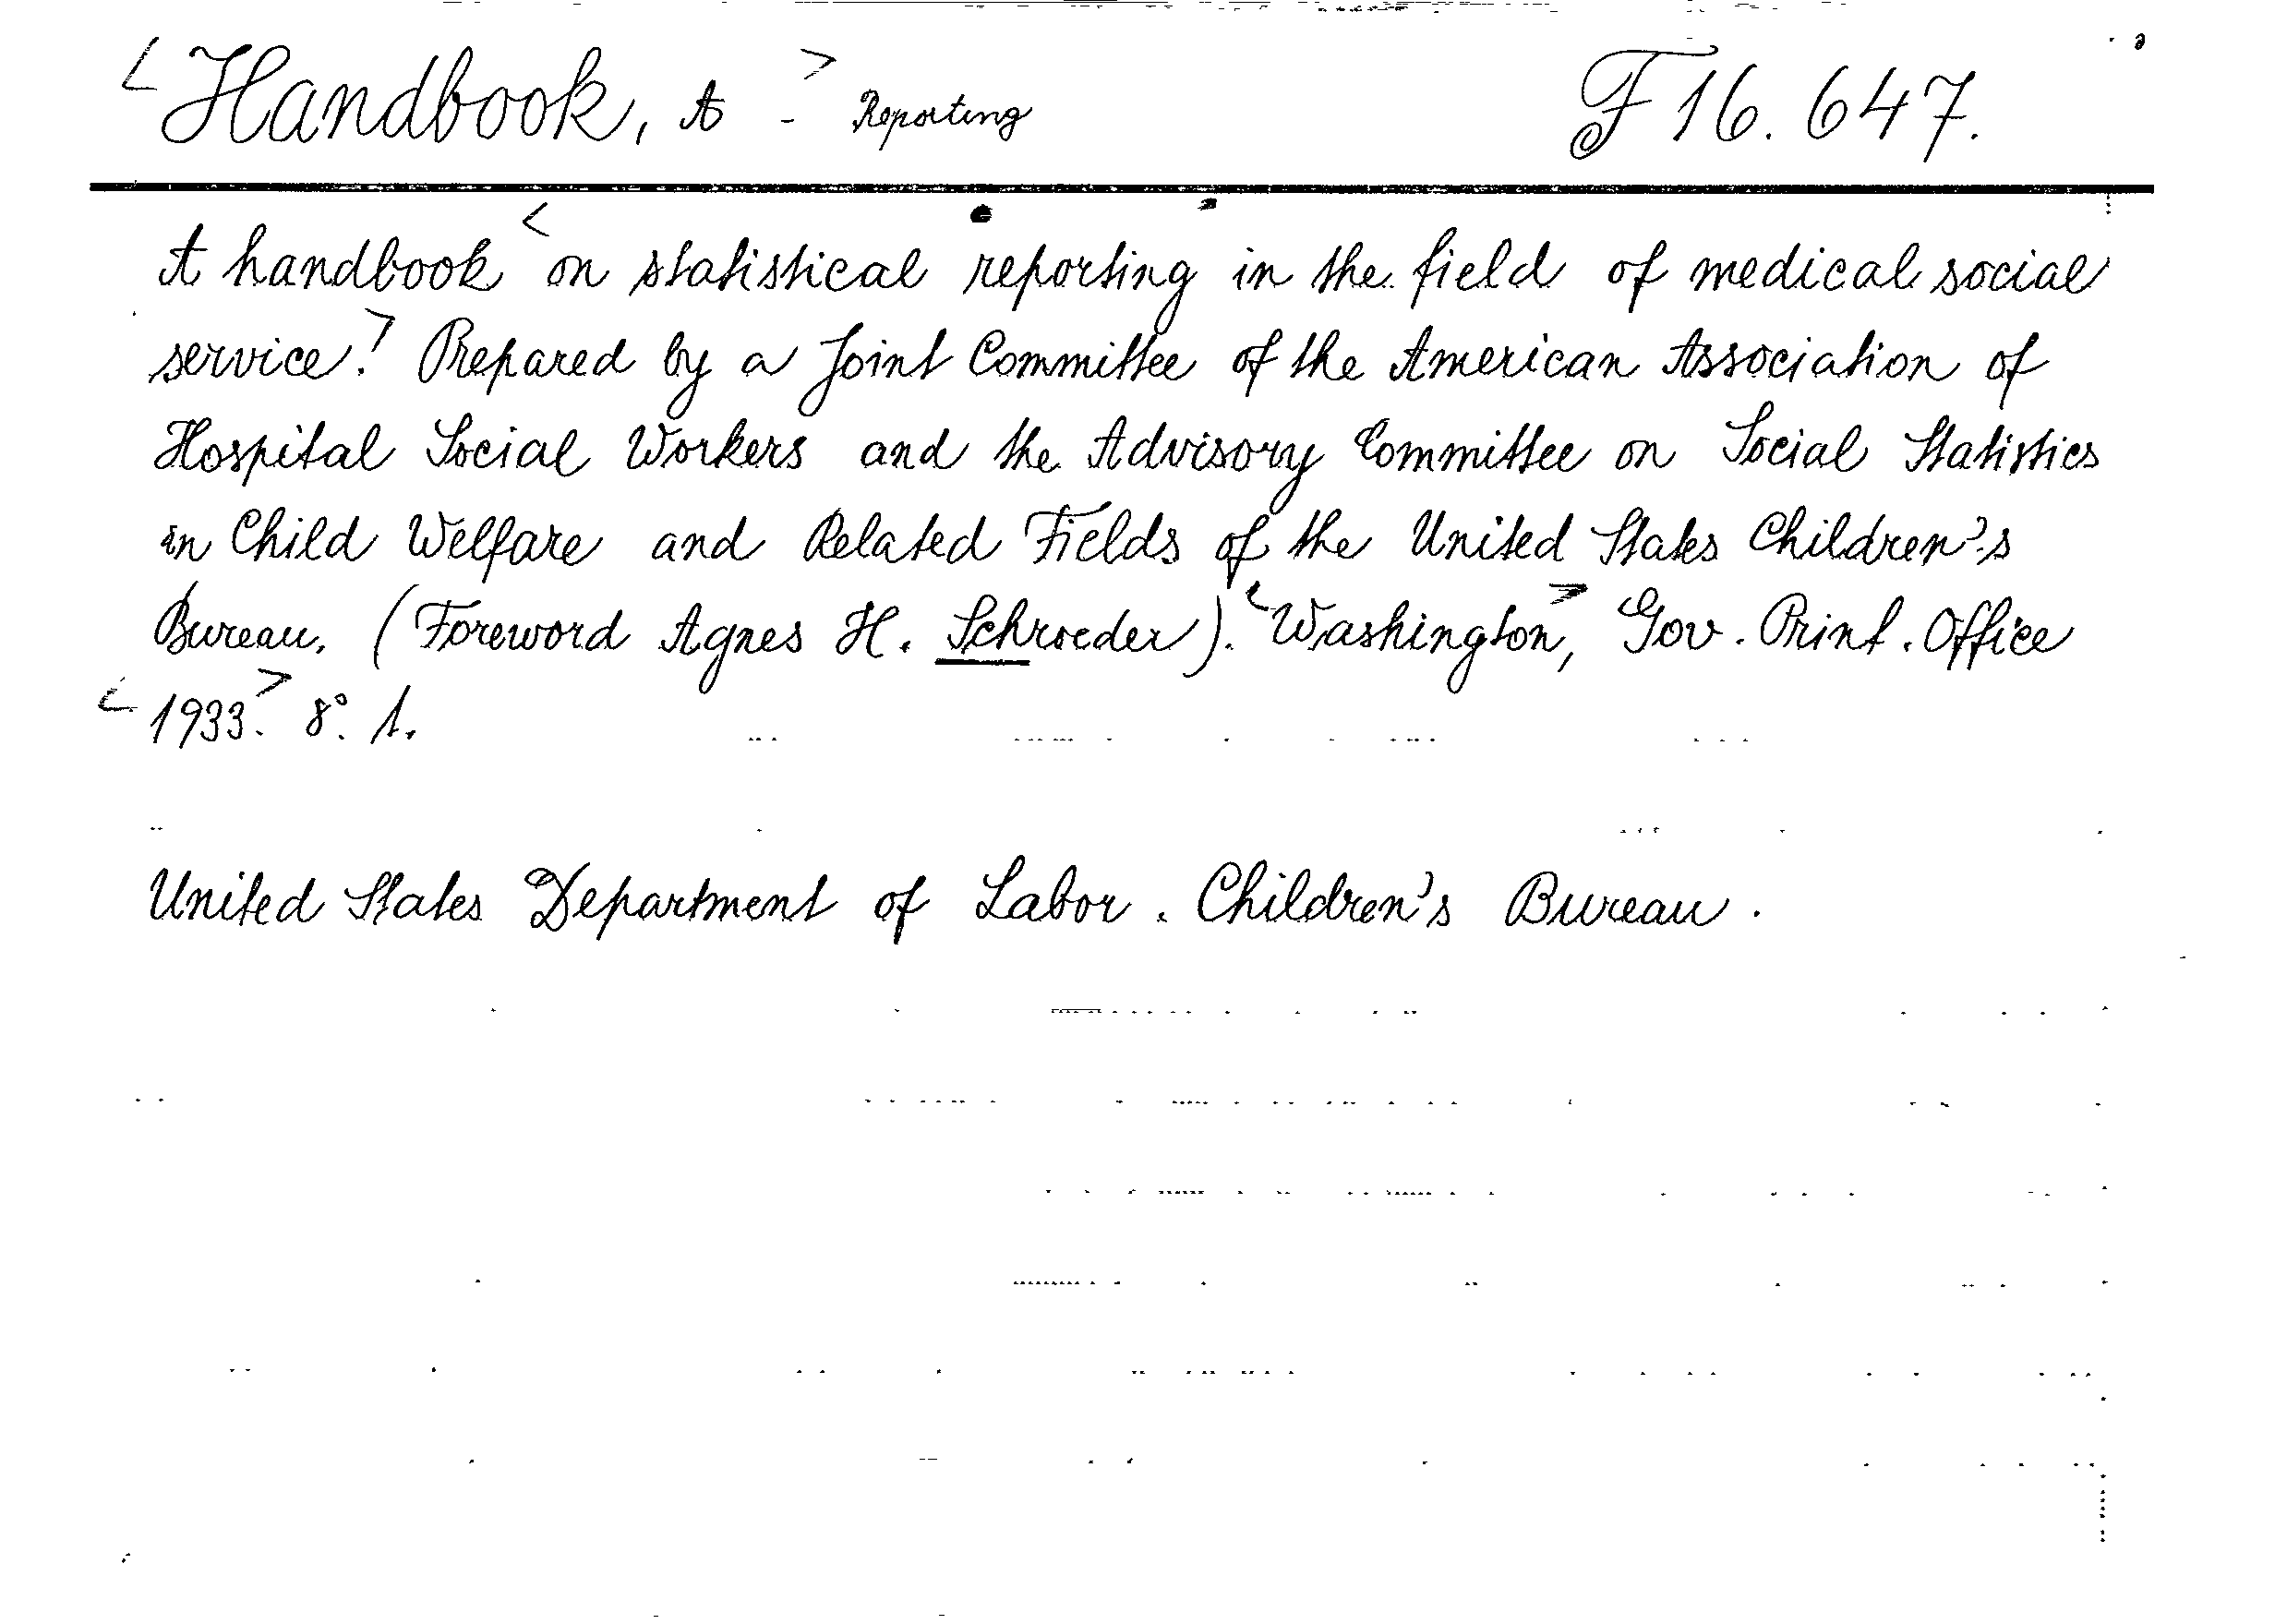 <Handbook, A -> Reporting F 16.647.
A handbook <on statistical reporting in the field of medical social
service.> Prepared by a Joint Committee of the American Association of
Hospital Social Workers and the Advisory Committee on Social Statistics
in Child Welfare and Related Fields of the United States Children's
Bureau. (Foreword Agnes H. Schroeder). <Washington>, Gov. Print. Office
<1933.> 8°. 1.
United States Department of Labor. Children's Bureau.